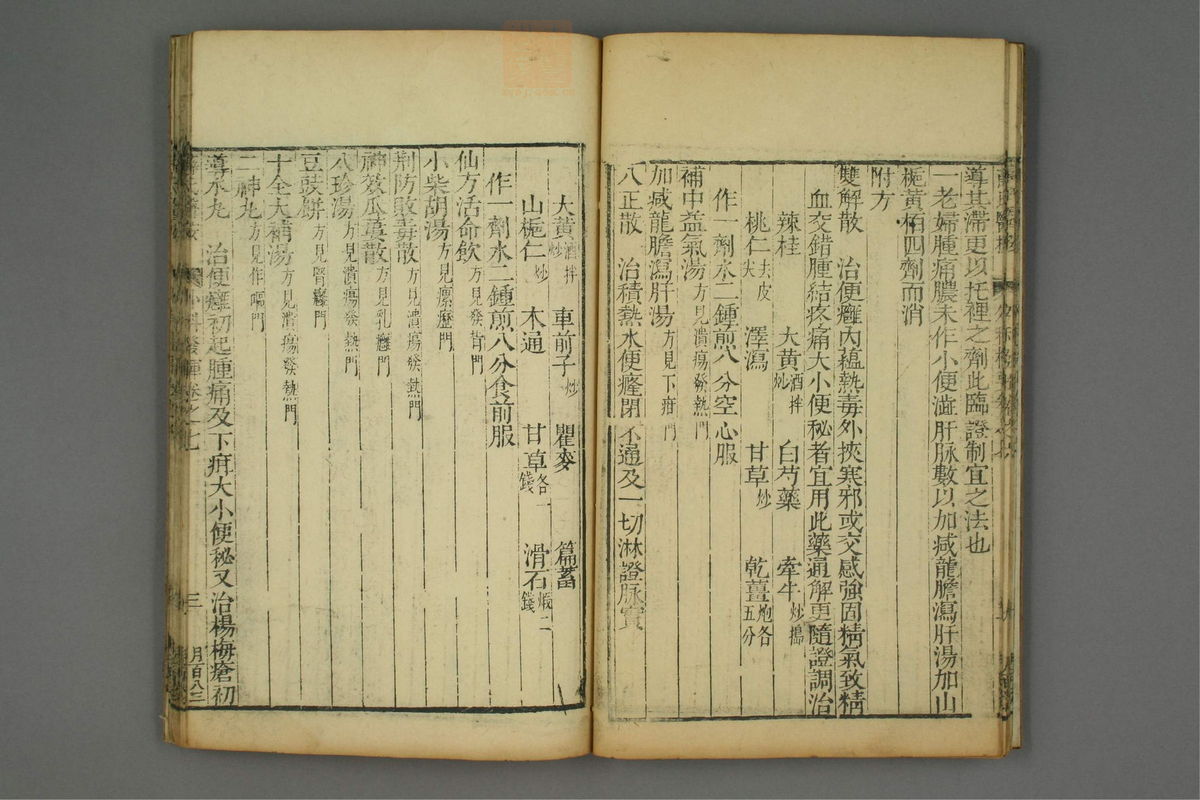 導其滞更以托裡之劑此臨證制宜之法也
一老婦腫痛膿未作小便澁肝脉數以加减龍膽瀉肝湯加山
梔黃栢四劑而消
附方
雙解散 治便癰內蘊熱毒外挾寒邪或交感強固精氣致精
血交錯腫結疼痛大小便秘者宜用此藥通解更隨證調治
辣桂 大黃酒拌炒 白芍藥 牽牛炒搗
桃仁去皮尖 澤瀉 甘草炒 乾薑炮各五分
作一劑水二鍾煎八分空心服
補中益氣湯方見潰瘍發熱門
加减龍膽瀉肝湯方見下疳門
八正散 治積熱水便癃閉不通及一切淋證脉實
大黃酒拌炒 車前子炒 瞿麥 萹蓄
山梔仁炒 木通 甘草各一錢 滑石煅二錢
作一劑水二鍾煎八分食前服
仙方活命飲方見發背門
小柴胡湯方見瘰癧門
荆防敗毒散方見潰瘍發熱門
神效瓜蔞散方見乳癰門
八珍湯方見潰瘍發熱門
豆豉餅方見腎癰門
十全大補湯方見潰瘍發熱門
二神丸方見作嘔門
導水丸 治便癰初起腫痛及下疳大小便秘又治楊梅瘡初
卷之七
三
月百八三